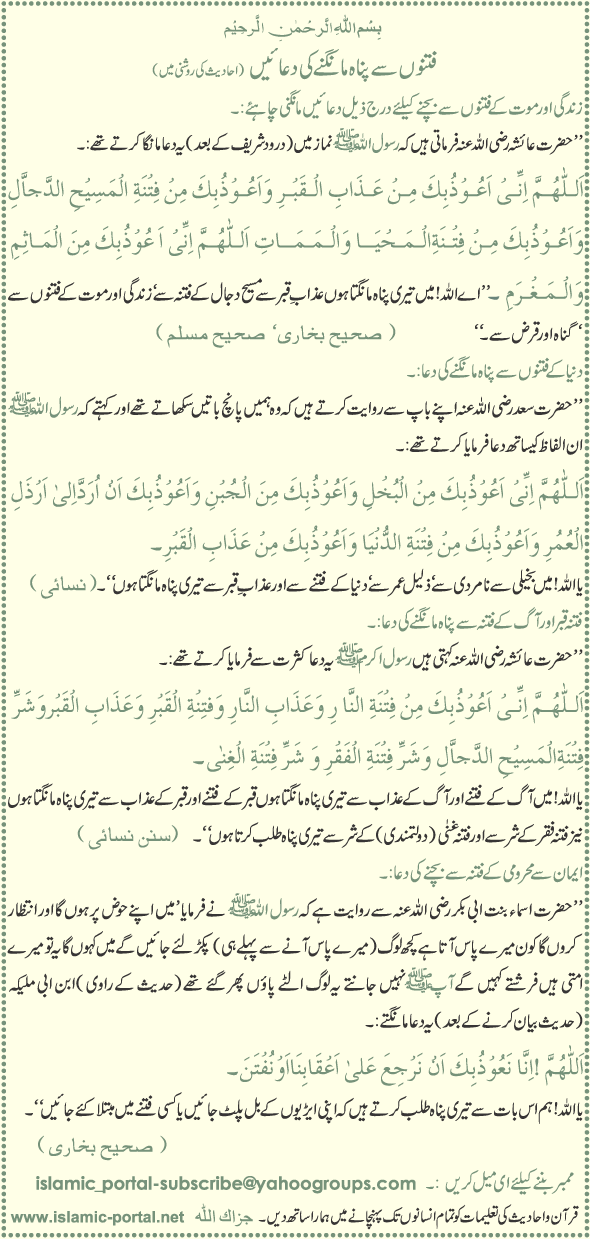 بِسْمِ اللهِ الرَّحْمٰنِ الرَّحِيْمِ
فتنوں سے پناہ مانگنے کی دعائیں (احادیث کی روشنی میں)
زندگی اور موت کے فتنوں سے بچنے کیلئے درج ذیل دعائیں مانگنی چاہئے:۔
’’حضرت عائشہ رضی اللہ عنہ فرماتی ہیں کہ رسول اللہ ﷺ نماز میں (درود شریف کے بعد) یہ دعا مانگا کرتے تھے:۔
اَللّٰهُمَّ اِنِّیْ اَعُوْذُبِكَ مِنْ عَذَابِ الْقَبْرِ وَاَعُوْذُبِكَ مِنْ فِتْنَةِ الْمَسِيْحِ الدَّجاَّلِ
وَاَعُوْذُبِكَ مِنْ فِتْنَةِالْمَحْيَا وَالْمَمَاتِ اَللّٰهُمَّ اِنِّیْ اَعُوْذُبِكَ مِنَ الْمَاثِمِ
وَالْمَغْرَمِ ۔’’اے اللہ! میں تیری پناہ مانگتا ہوں عذاب قبر سے مسیح دجال کے فتنہ سے‘ زندگی اور موت کے فتنوں سے
‘ گناہ اور قرض سے۔‘‘ ( صحیح بخاری‘ صحیح مسلم )
دنیا کے فتنوں سے پناہ مانگنے کی دعا:۔
’’حضرت سعد رضی اللہ عنہ اپنے باپ سے روایت کرتے ہیں کہ وہ ہمیں پانچ باتیں سکھاتے تھے اور کہتے کہ رسول اللہ ﷺ
ان الفاظ کیساتھ دعا فرمایا کرتے تھے:۔
اَللّٰهُمَّ اِنِّیْ اَعُوْذُبِكَ مِنْ الْبُخْلِ وَاَعُوْذُبِكَ مِنَ الْجُبْنِ وَاَعُوْذُبِكَ اَنْ اُرَدَّاِلیٰ اَرْذَلِ
الْعُمُرِ وَاَعُوْذُبِكَ مِنْ فِتْنَةِ الدُّنْيَا وَاَعُوْذُبِكَ مِنْ عَذَابِ الْقَبْرِ۔
یا اللہ! میں بخیلی سے نامردی سے‘ ذلیل عمر سے‘ دنیا کے فتنے سے اور عذاب قبر سے تیری پناہ مانگتا ہوں‘‘۔ ( نسائی )
فتنہ قبر اور آگ کے فتنہ سے پناہ مانگنے کی دعا:۔
’’حضرت عائشہ رضی اللہ عنہ کہتی ہیں رسول اکرم ﷺ یہ دعا کثرت سے فرمایا کرتے تھے:۔
اَللّٰهُمَّ اِنِّیْ اَعُوْذُبِكَ مِنْ فِتْنَةِ النَّا رِ وَعَذَابِ النَّارِ وَفِتْنِةِ الْقَبْرِ وَعَذَابِ الْقَبْرِوَشَرِّ
فِتْنَةِالْمَسِيْحِ الدَّجاَّلِ وَشَرِّ فِتْنَةِ الْفَقْرِ وَ شَرِّ فِتْنَةِ الْغِنٰی۔
یا اللہ! میں آگ کے فتنے اور آگ کے عذاب سے تیری پناہ مانگتا ہوں قبر کے فتنے اور قبر کے عذاب سے تیری پناہ مانگتا ہوں
نیز فتنہ فقر کے شر سے اور فتنہ غنیٰ (دولتمندی) کے شر سے تیری پناہ طلب کرتا ہوں‘‘۔ (سنن نسائی )
ایمان سے محرومی کے فتنہ سے بچنے کی دعا:۔
’’حضرت اسماء بنت ابی بکر رضی اللہ عنہ سے روایت ہے کہ رسول اللہ ﷺ نے فرمایا’ میں اپنے حوض پر ہوں گا اور انتظار
کروں گا کون میرے پاس آتا ہے کچھ لوگ (میرے پاس آنے سے پہلے ہی) پکڑ لئے جائیں گے میں کہوں گا یہ تو میرے
امتی ہیں فرشتے کہیں گے آپ ﷺ نہیں جانتے یہ لوگ الٹے پاؤں پھر گئے تھے (حدیث کے راوی) ابن ابی ملیکہ
(حدیث بیان کرنے کے بعد) یہ دعا مانگتے:۔
اَللّٰهُمَّ !اِنَّا نَعُوْذُبِكَ اَنْ نَرْجِعَ عَلیٰ اَعْقَابِنَااَوْنُفْتَنَ۔
یا اللہ! ہم اس بات سے تیری پناہ طلب کرتے ہیں کہ اپنی ایڑیوں کے بل پلٹ جائیں یا کسی فتنے میں مبتلا کئے جائیں‘‘۔
( صحیح بخاری )
ممبر بننے کیلئے ای میل کریں :۔ islamic_portal-subscribe@yahoogroups.com
قرآن و احادیث کی تعلیمات کو تمام انسانوں تک پہنچانے میں ہمارا ساتھ دیں۔ جزاك الله www.islamic-portal.net